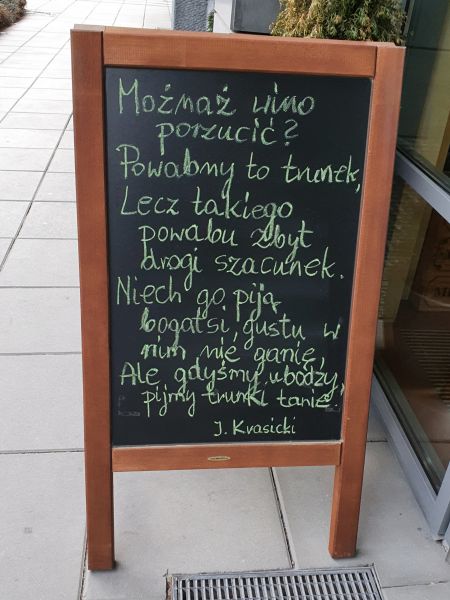 Możnaż wino
porzucić?
Powabny to trunek,
Lecz takiego
powabu zbyt
drogi szacunek.
Niech go piją
bogatsi, gustu w
nim nie ganię,
Ale gdyśmy ubodzy,
pijmy trunki tanie.
J. Krasicki